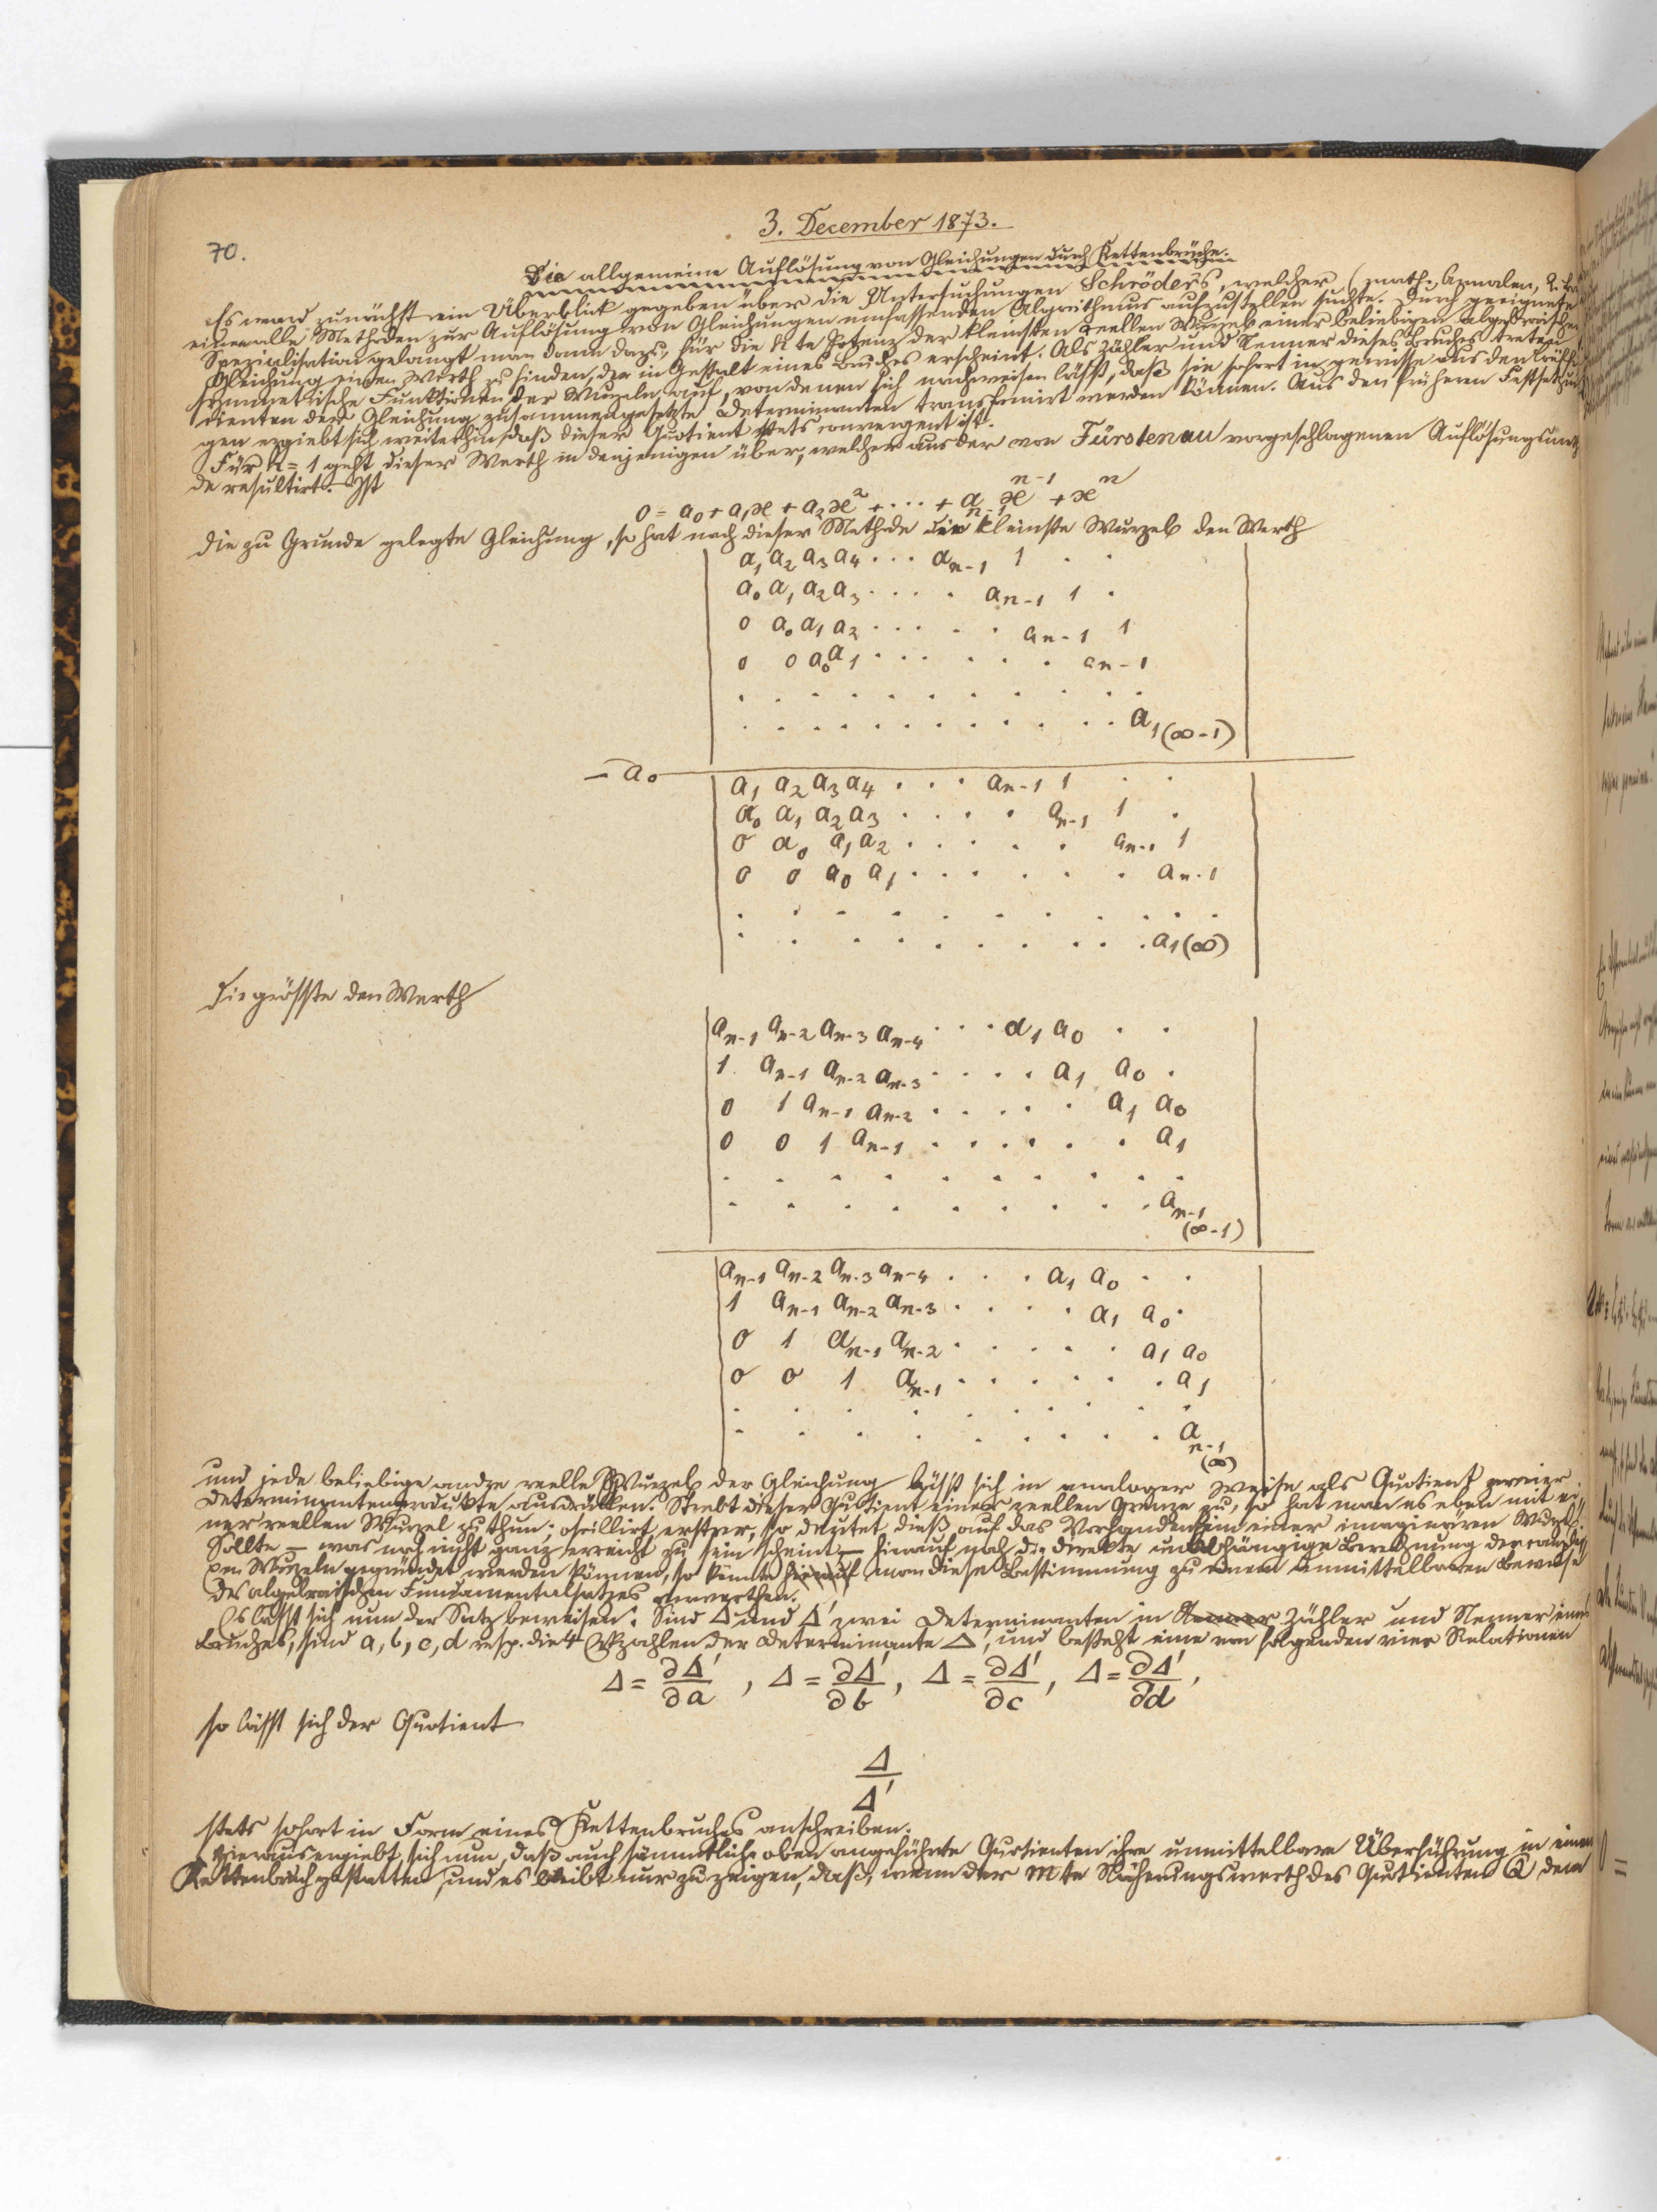 70.
3. December 1873.
Die allgemeine Auflösung von Gleichungen durch Kettenbrüche.
Es ward zunächst ein Überblick gegeben über die Untersuchungen Schröders, welcher (math. Annalen, 2.
einen alle Methoden zur Auflösung von Gleichungen umfassenden Algorithmus aufzustellen suchte. Durch geeignete
Spezialisation gelangt man dann dazu, für die kte Potenz der kleinsten reellen Wurzel einer beliebigen algebraischen
Gleichung einen Werth zu finden, der in Gestalt eines Bruches erscheint. Als Zähler und Nenner dieses Bruches treten
symmetrische Funktionen der Wurzeln auf, von denen sich nachweisen lässt, daß sie sofort in gewisse aus den Coeffi-
cienten der Gleichung zusammengesetzte Determinanten transformirt werden können. Aus den früheren Festsetzun-
gen ergiebt sich weiterhin, daß dieser Quotient stets convergent ist.
Für k = 1 geht dieser Werth in denjenigen über, welcher aus der von Fürstenau vorgeschlagenen Auflösungsmetho-
de resultirt. Ist
0 = a₀ + a₁x + a₂x² + ... + aₙ₋₁xⁿ⁻¹ + xⁿ
die zu Grunde gelegte Gleichung, so hat nach dieser Methode die kleinste Wurzel den Werth
a₁ a₂ a₃ a₄ . . . aₙ₋₁ 1 . .
a₀ a₁ a₂ a₃ . . . . aₙ₋₁ 1 .
0 a₀ a₁ a₂ . . . . . aₙ₋₁ 1
0 0 a₀ a₁ . . . . . . aₙ₋₁
. . . . . . . . . . .
. . . . . . . . . . a₁ (∞-1)
- a₀
a₁ a₂ a₃ a₄ . . . aₙ₋₁ 1 . .
a₀ a₁ a₂ a₃ . . . . aₙ₋₁ 1 .
0 a₀ a₁ a₂ . . . . . aₙ₋₁ 1
0 0 a₀ a₁ . . . . . . aₙ₋₁
. . . . . . . . . . .
. . . . . . . . . a₁ (∞)
die grösste den Werth
aₙ₋₁ aₙ₋₂ aₙ₋₃ aₙ₋₄ . . . a₁ a₀ . .
1 aₙ₋₁ aₙ₋₂ aₙ₋₃ . . . . a₁ a₀ .
0 1 aₙ₋₁ aₙ₋₂ . . . . . a₁ a₀
0 0 1 aₙ₋₁ . . . . . . a₁
. . . . . . . . . .
. . . . . . . . . aₙ₋₁ (∞-1)
aₙ₋₁ aₙ₋₂ aₙ₋₃ aₙ₋₄ . . . a₁ a₀ . .
1 aₙ₋₁ aₙ₋₂ aₙ₋₃ . . . . a₁ a₀ .
0 1 aₙ₋₁ aₙ₋₂ . . . . . a₁ a₀
0 0 1 aₙ₋₁ . . . . . . a₁
. . . . . . . . . .
. . . . . . . . . aₙ₋₁ (∞)
und jede beliebige andre reelle Wurzel der Gleichung lässt sich in analoger Weise als Quotient zweier
Determinantenprodukte ausdrücken. Strebt dieser Quotient einer reellen Grenze zu, so hat man es eben mit ei-
ner reellen Wurzel zu thun; oscillirt erstrer, so deutet dieß auf das Vorhandensein einer imaginären Wurzel.
Sollte – was noch nicht ganz erreicht zu sein scheint – hierauf noch die direkte unabhängige Berechnung der
Wurzeln gegründet werden können, so könnte hierauf man diese Bestimmung zu einem unmittelbaren Beweise
des algebraischen Fundamentalsatzes verwerthen.
Es lässt sich nun der Satz beweisen: Sind Δ und Δ′ zwei Determinanten in Nenner Zähler und Nenner eines
Bruches, sind a, b, c, d resp. die 4 Eckzahlen der Determinante Δ′, und besteht eine von folgenden vier Relationen
Δ = ∂Δ′/∂a , Δ = ∂Δ′/∂b , Δ = ∂Δ′/∂c , Δ = ∂Δ′/∂d ,
so lässt sich der Quotient
Δ/Δ′
stets sofort in Form eines Kettenbruches anschreiben.
Hieraus ergiebt sich nun, daß auch sämmtliche oben angeführte Quotienten ihre unmittelbare Überführung in einen
Kettenbruch gestatten, und es bleibt nur zu zeigen, daß, wenn der mte Näherungswerth des Quotienten Q dem